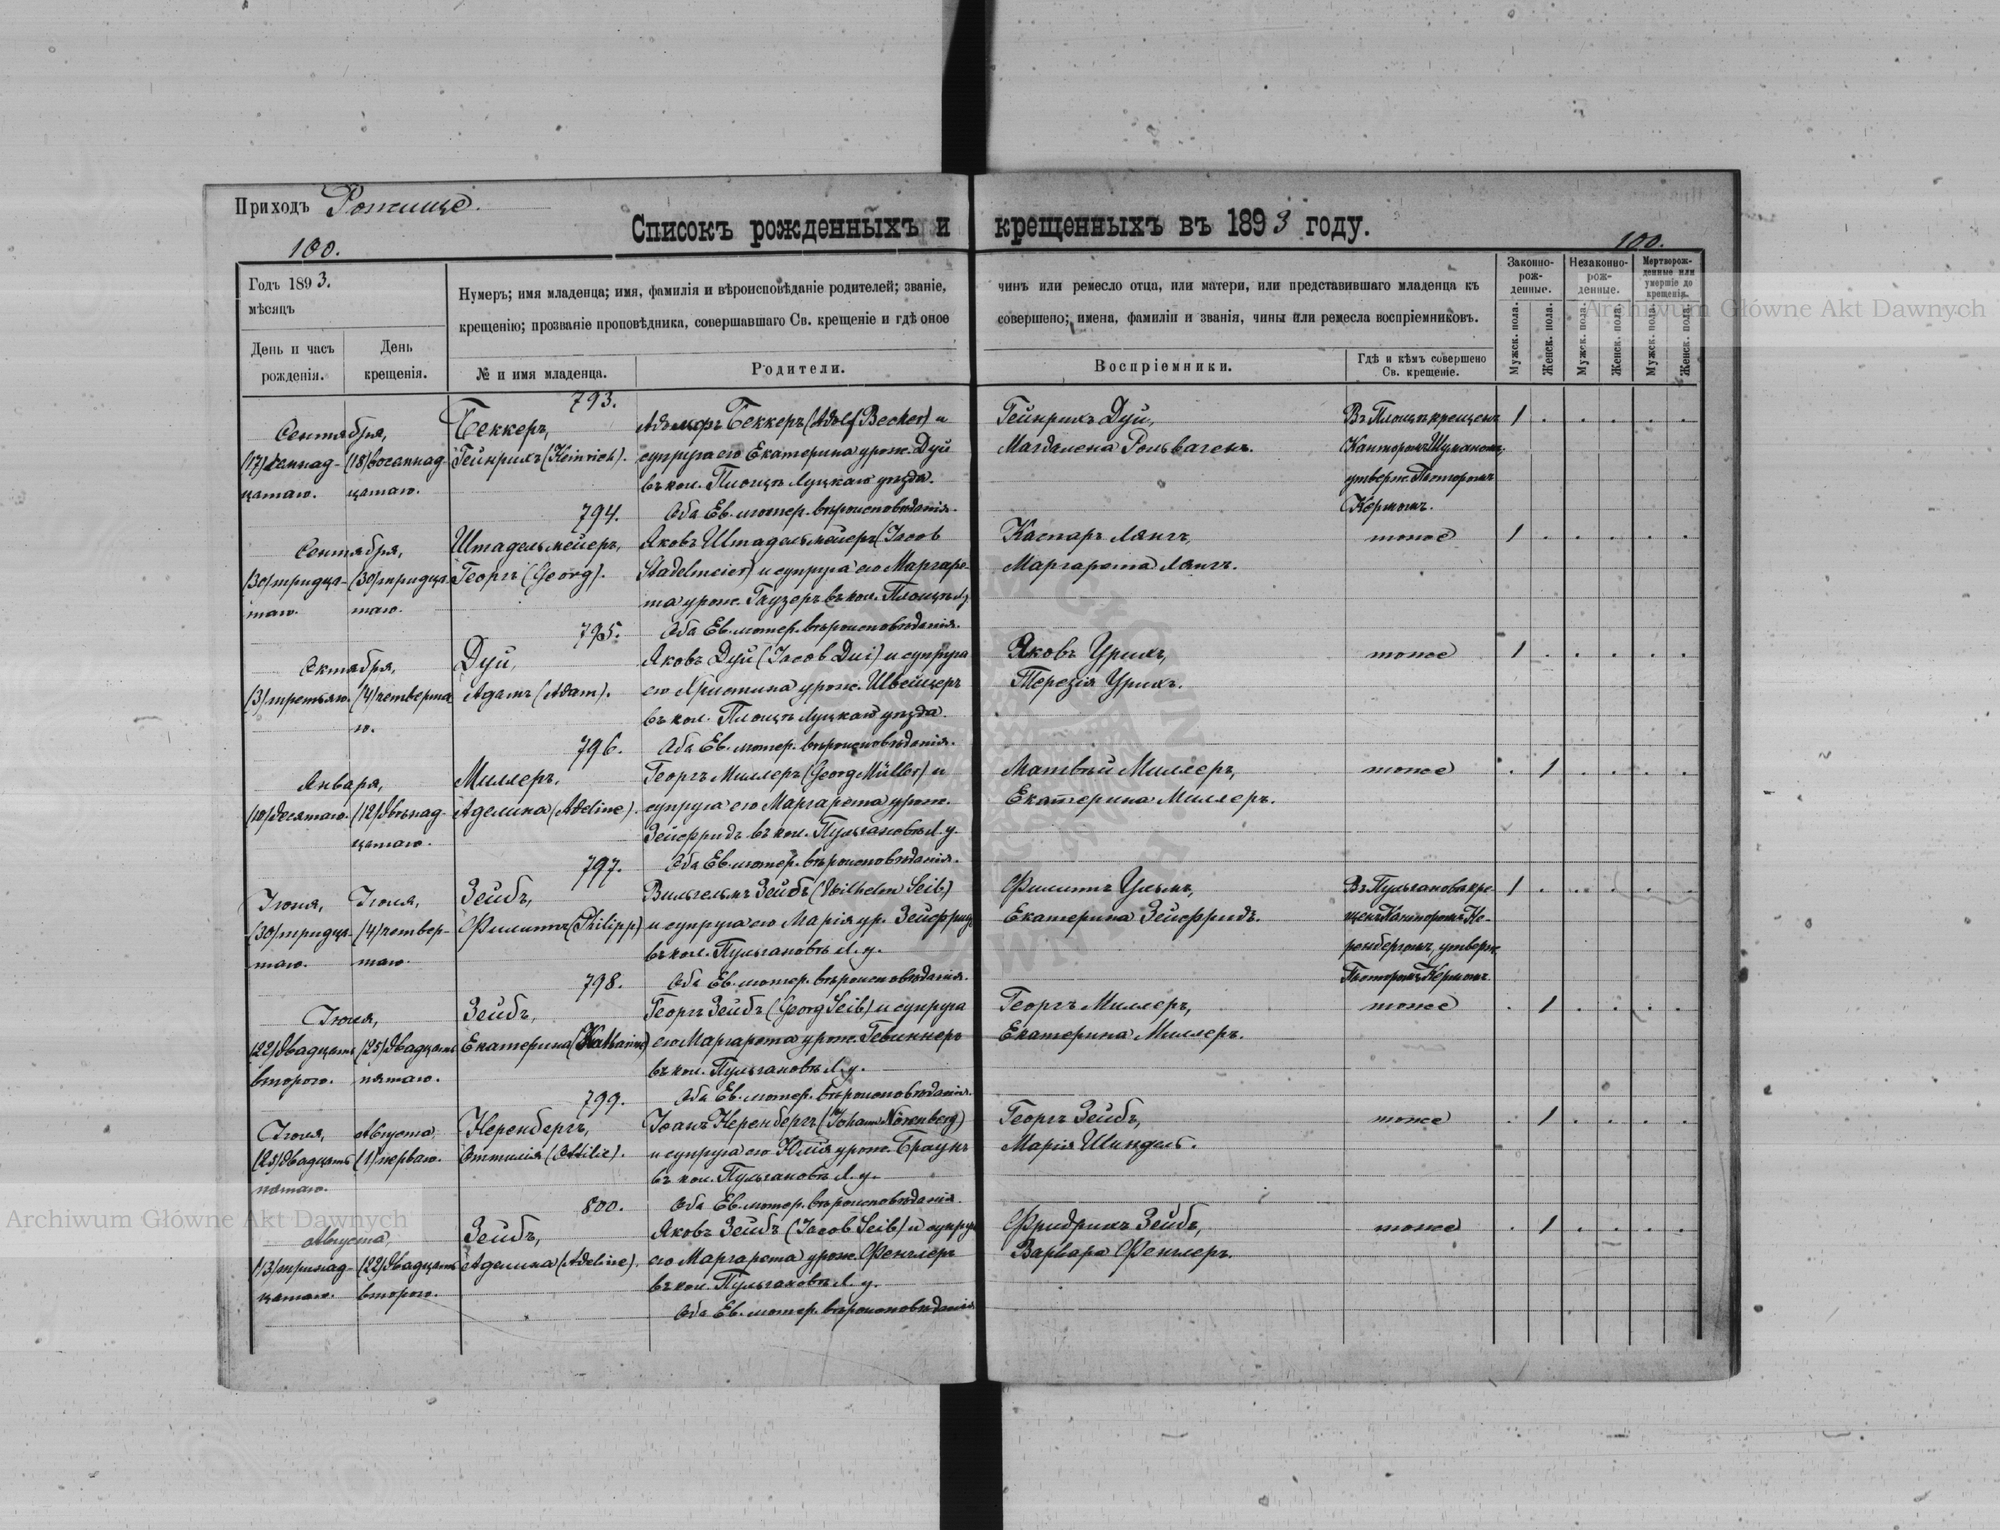 Приходъ Рожище.
Списокъ рожденныхъ и крещенныхъ въ 1893 году.
100.
100.
Годъ 1893.
мѣсяцъ
День и часъ рожденія.
День крещенія.
Нумеръ; имя младенца; имя, фамилія и вѣроисповѣданіе родителей; званіе, чинъ или ремесло отца, или матери, или представившаго младенца къ
крещенію; прозваніе проповѣдника, совершавшаго Св. крещеніе и гдѣ оное совершено; имена, фамиліи и званія, чины или ремесла воспріемниковъ.
№ и имя младенца.
Родители.
Воспріемники.
Гдѣ и кѣмъ совершено Св. крещеніе.
Законно-рож-денные.
Незаконно-рож-денные.
Мертворож-денные или умершіе до крещенія.
Мужск. пола.
Женск. пола.
Мужск. пола.
Женск. пола.
Мужск. пола.
Женск. пола.
793.
Сентября,
(17) семнад-
цатаго.
(18) восемнад-
цатаго.
Беккеръ,
Гейнрихъ (Heinrich).
Адольфъ Беккеръ (Adolf Becker) и
супруга его Екатерина урож. Дуй
въ кол. Площъ Луцкаго уѣзда.
Оба Ев.-лютер. вѣроисповѣданія.
Гейнрихъ Дуй,
Магдалена Рольвагенъ.
Въ Площѣ крещенъ
Канторомъ Шуманомъ,
утверж. Пасторомъ
Кермомъ.
1 . . . . .
794.
Сентября,
(30) тридца-
таго.
(30) тридца-
таго.
Штадельмейеръ,
Георгъ (Georg).
Яковъ Штадельмейеръ (Jacob
Stadelmeier) и супруга его Маргаре-
та урож. Гаузеръ въ кол. Площъ Л.у.
Оба Ев.-лютер. вѣроисповѣданія.
Каспаръ Лангъ,
Маргарета Лангъ.
тоже
1 . . . . .
795.
Октября,
(3) третьяго.
(4) четверта
го.
Дуй,
Адамъ (Adam).
Яковъ Дуй (Jacob Dui) и супруга
его Христина урож. Швейцеръ
въ кол. Площъ Луцкаго уѣзда.
Оба Ев.-лютер. вѣроисповѣданія.
Яковъ Урихъ,
Терезія Урихъ.
тоже
1 . . . . .
796.
Января,
(10) десятаго.
(12) двѣнад-
цатаго.
Миллеръ,
Аделина (Adeline).
Георгъ Миллеръ (Georg Müller) и
супруга его Маргарета урож.
Зейфридъ въ кол. Пульгановъ Л. у.
Оба Ев.-лютер. вѣроисповѣданія.
Матвѣй Миллеръ,
Екатерина Миллеръ.
тоже
. 1 . . . .
797.
Іюня,
(30) тридца-
таго.
Іюля,
(4) четвер-
таго.
Зейбъ,
Филиппъ (Philipp)
Вильгельмъ Зейбъ (Wilhelm Seib)
и супруга его Марія ур. Зейфридъ
въ кол. Пульгановъ Л. у.
Оба Ев.-лютер. вѣроисповѣданія.
Филиппъ Ульмъ,
Екатерина Зейфридъ.
Въ Пульгановѣ кре-
щенъ Канторомъ Не-
ренбергомъ, утверж.
Пасторомъ Кермомъ.
1 . . . . .
798.
Іюля,
(22) двадцать
второго.
(25) двадцать
пятаго.
Зейбъ,
Екатерина (Katharine)
Георгъ Зейбъ (Georg Seib) и супруга
его Маргарета урож. Гевиннеръ
въ кол. Пульгановъ Л. у.
Оба Ев.-лютер. вѣроисповѣданія.
Георгъ Миллеръ,
Екатерина Миллеръ.
тоже
. 1 . . . .
799.
Іюля,
(25) двадцать
пятаго.
Августа,
(1) перваго.
Неренбергъ,
Оттилія (Ottilie).
Іоанъ Неренбергъ (Johann Nörenberg)
и супруга его Юлія урож. Браунъ
въ кол. Пульгановъ Л. у.
Оба Ев.-лютер. вѣроисповѣданія.
Георгъ Зейбъ,
Марія Шиндель.
тоже
. 1 . . . .
800.
Августа,
(13) тринад-
цатаго.
(22) двадцать
второго.
Зейбъ,
Аделина (Adeline).
Яковъ Зейбъ (Jacob Seib) и супруга
его Маргарета урож. Фенглеръ
въ кол. Пульгановъ Л. у.
Оба Ев.-лютер. вѣроисповѣданія.
Фридрихъ Зейбъ,
Варвара Фенглеръ.
тоже
. 1 . . . .
Archiwum Główne Akt Dawnych
Archiwum Główne Akt Dawnych